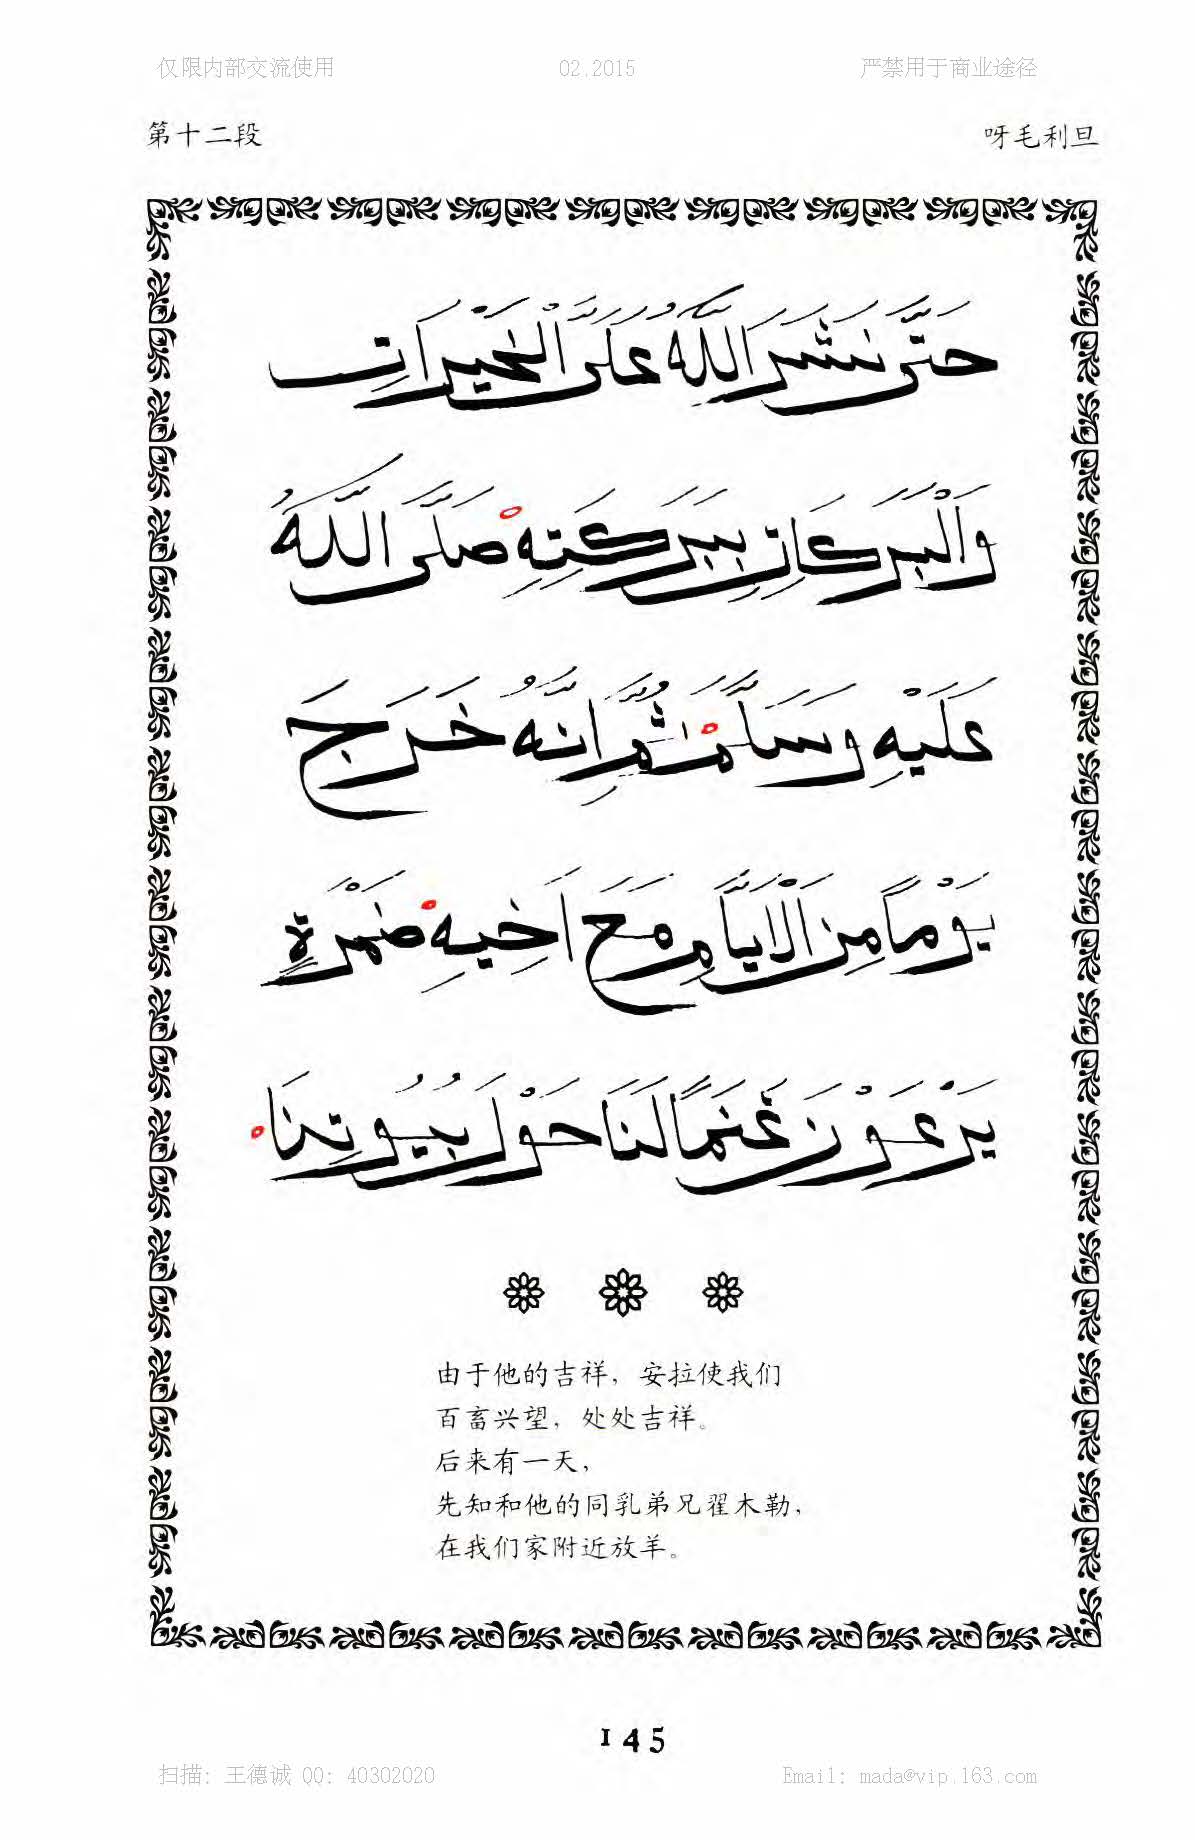 仅限内部交流使用 02.2015 严禁用于商业途径
第十二段 呀毛利旦
حَتَّى نَشَرَ اللَّهُ عَلَىَّ الْخَيْرَاتِ
وَالْبَرَكَاتِ بِبَرَكَتِهِ صَلَّى اللَّهُ
عَلَيْهِ وَسَلَّمَ ثُمَّ اِنَّهُ خَرَجَ
يَوْمًا مِنَ الْاَيَّامِ مَعَ اَخِيهِ ضَمْرَةٍ
يَرْعَوْنَ غَنَمًا لَنَا حَوْلَ بُيُوتِنَا
由于他的吉祥，安拉使我们
百畜兴望，处处吉祥。
后来有一天，
先知和他的同乳弟兄翟木勒，
在我们家附近放羊。
145
扫描: 王德诚 QQ: 40302020 Email: mada@vip.163.com